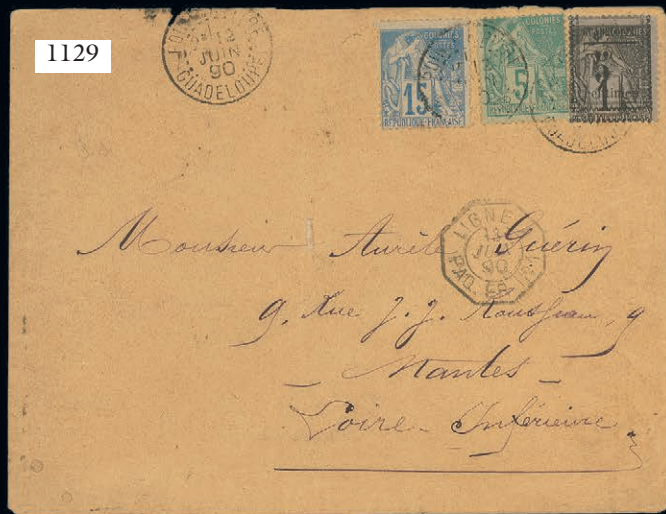 1129
12
JUIN
90
GUADELOUPE
COLONIES
POSTES
15
RÉPUBLIQUE FRANÇAISE
COLONIES
POSTES
5
RÉPUBLIQUE FRANÇAISE
LIGNE
90
PAQ. FR.
Monsieur Aurèle Guérin
9, Rue J. J. Rousseau, 9
Nantes
Loire Inférieure